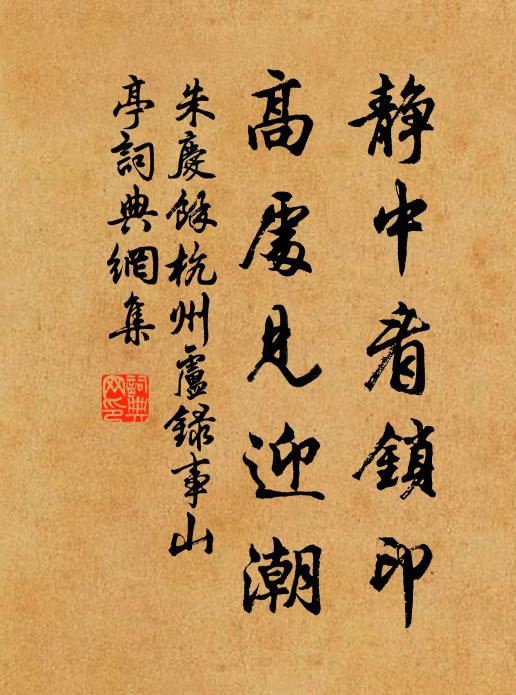 靜中看鎖印
高處見迎潮
朱慶餘杭州盧錄事山
亭詞典網集
詞典網印